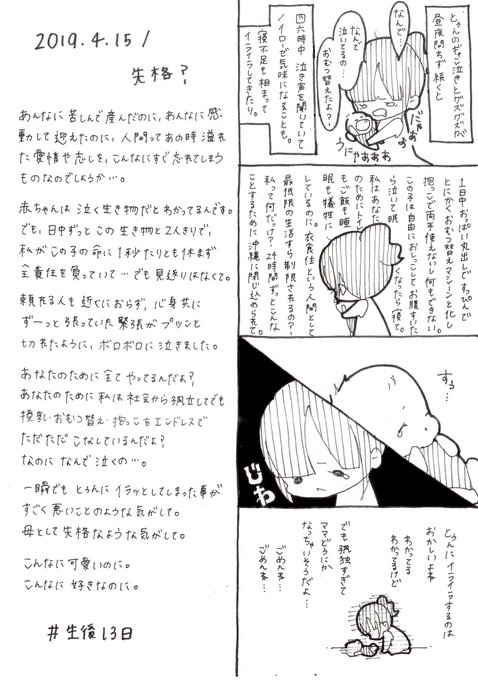 2019.4.15/
失格？
あんなに苦しんで産んだのに、あんなに感
動して迎えたのに、人間ってあの時溢れ
た愛情や恋しさ、こんなにすぐ忘れてしまう
ものなのでしょうか…。
赤ちゃんは泣く生き物だとわかってるんです。
でも、日中ずっとこの生き物と2人きりで、
私がこの子の命に1秒たりとも休まず
全責任を負っていて…でも見返りはなくて。
頼れる人も近くにおらず、心身共に
ずーっと張っていた緊張がプツンと
切れたように、ボロボロに泣きました。
あなたのために全てやってるんだよ？
あなたのために私は社会から孤立してでも
授乳・おむつ替え・抱っこをエンドレスで
ただただこなしているんだよ？
なのになんで泣くの…。
一瞬でもとぅんにイラッとしてしまった事が
すごく悪いことのような気がして。
母として失格なような気がして。
こんなに可愛いのに。
こんなに好きなのに。
#生後13日
とぅんのギャン泣きとグズグズが
昼夜問わず続くと
なんで…
なんで
泣いてるの…
おむつ替えたよ？
四六時中泣き声を聞いていて
ノイローゼ気味になることも。
寝不足も相まって
イライラしてきたり。
うにゃあああ
1日中おっぱい丸出しですっぴんで
とにかくおむつ替えマシーンと化し
抱っこで両手使えないし何もできない。
この子は自由におしっこしてお腹すいた
ら泣いて眠くなったら寝て。
私はあなた
のためにトイレ
もご飯も睡
眠も犠牲に
しているのに。衣食住という人間として
最低限の生活すら制限されるの？
私って何だっけ？24時間ずっとこんな
ことするために沖縄に閉じ込められて。
すぅ…
じわ
とぅんにイライラするのは
おかしいよね
わかってる
わかってるけど
でも孤独すぎて
ママどうにか
なっちゃいそうだよ…
ごめんね…
ごめんね…